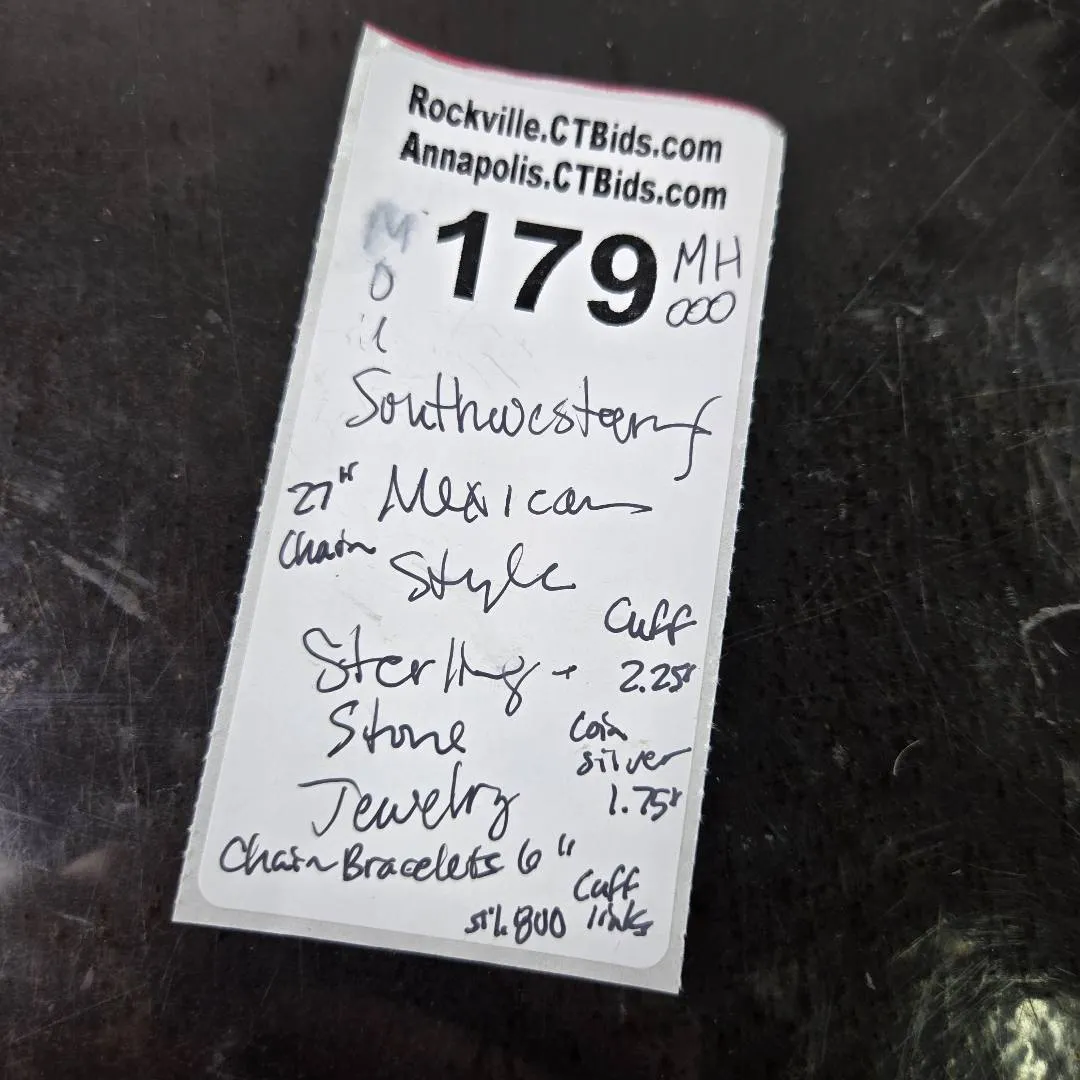 Rockville.CTBids.com
Annapolis.CTBids.com
179
MH
000
M
O
Southwestern
27" Mexican
Chain
Style
Cuff
2.25"
Sterling +
Stone
Coin
silver
1.75"
Jewelry
Chain Bracelets 6"
Cuff
links
sil. 800